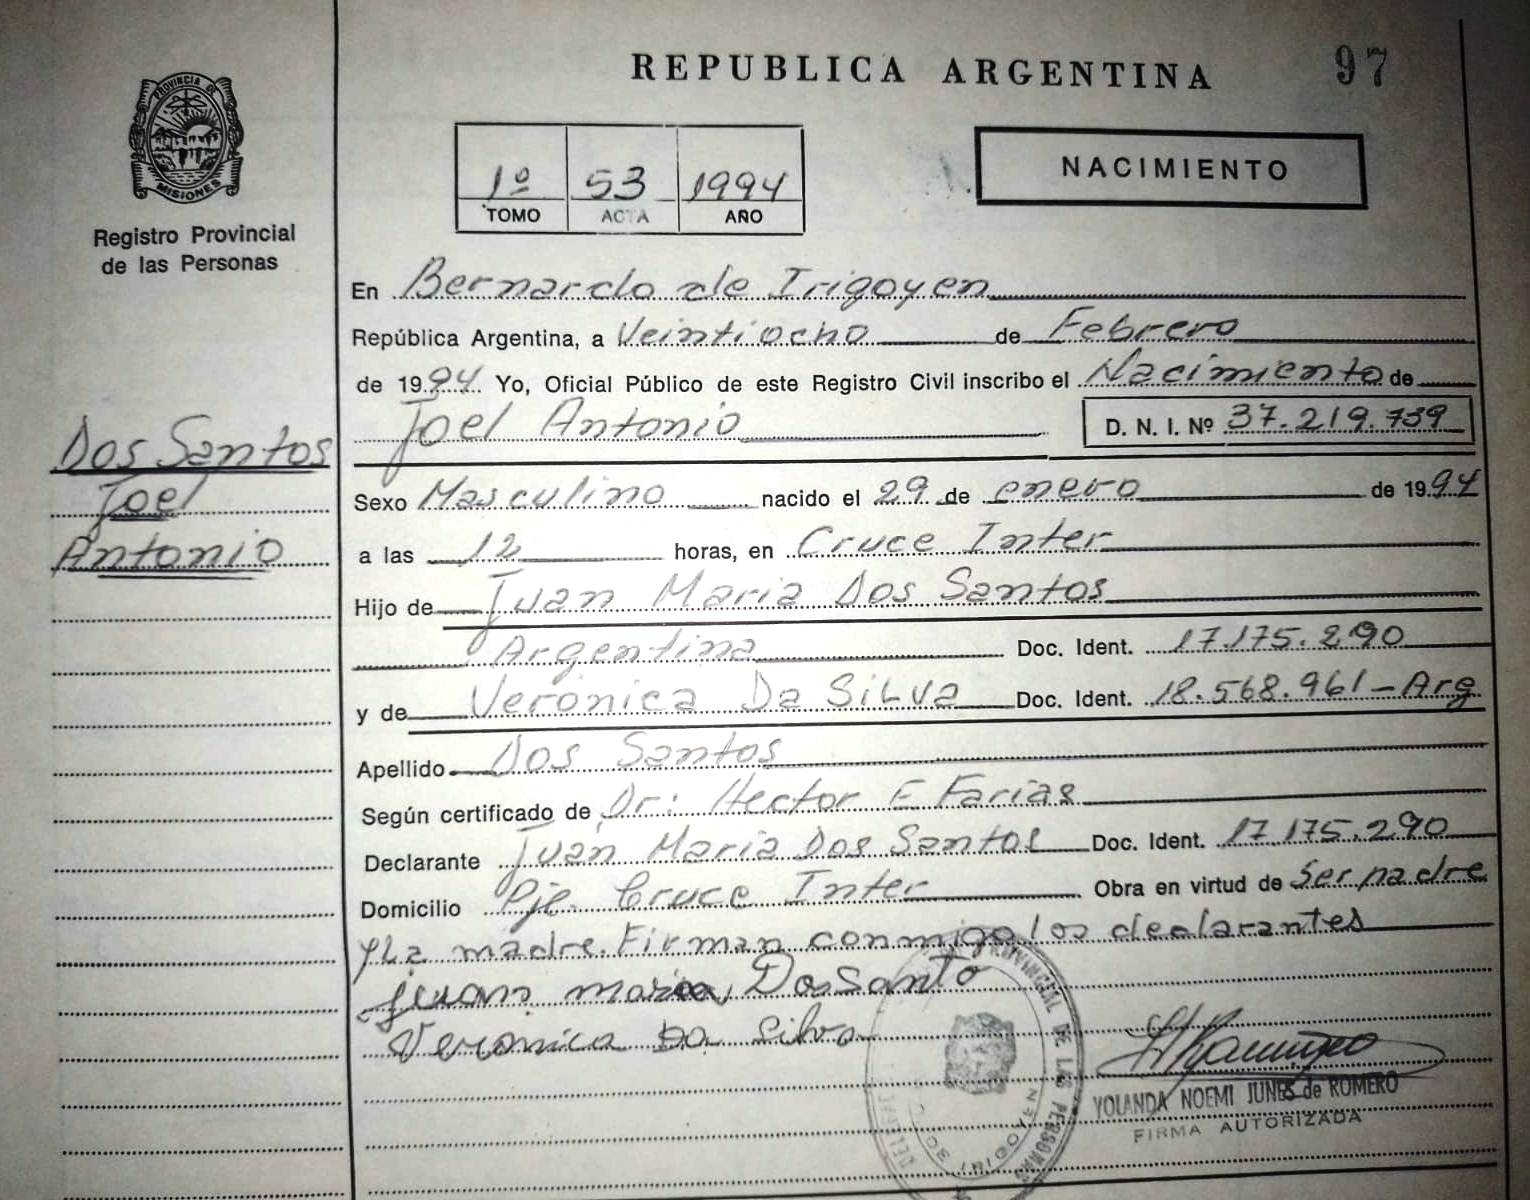 REPUBLICA ARGENTINA
97
PROVINCIA DE
MISIONES
Registro Provincial
de las Personas
1º 53 1994
TOMO ACTA AÑO
NACIMIENTO
En Bernardo de Irigoyen
República Argentina, a Veintiocho de Febrero
de 1994. Yo, Oficial Público de este Registro Civil inscribo el Nacimiento de
Joel Antonio D. N. I. Nº 37.219.739
Dos Santos
Joel
Antonio
Sexo Masculino nacido el 29 de enero de 1994
a las 12 horas, en Cruce Inter
Hijo de Juan Maria Dos Santos
Argentina Doc. Ident. 17.175.290
y de Verónica Da SiLva Doc. Ident. 18.568.961-Arg
Apellido Dos Santos
Según certificado de Dr: Hector E Farias
Declarante Juan Maria Dos Santos Doc. Ident. 17.175.290
Domicilio Pje. Cruce Inter Obra en virtud de Ser padre
y La madre. Firman conmigo los declarantes
Juan maria DosSanto
Veronica Da Silva
PROVINCIAL DE LAS PERSONAS
YOLANDA NOEMI JUNES de ROMERO
FIRMA AUTORIZADA